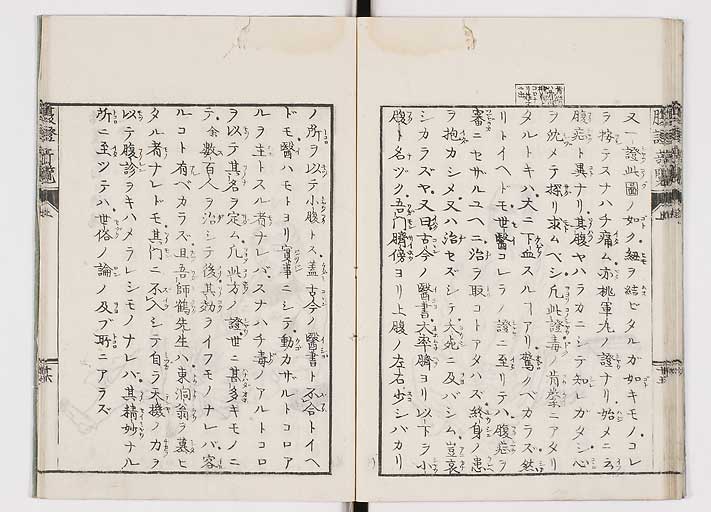 又一證此圖ノ如ク紐ヲ結ビタルガ如キモノコレ
ヲ按テスナハチ痛ム亦桃軍丸ノ證ナリ始メニ云
腹症ト異ナリ其腹ヤハラカニシテ知レガタシ心
ヲ沈メテ探リ求ムベシ凡此證毒ノ肯綮ニアタリ
タルトキハ大ニ下血スルアリ驚クベカラズ然
リトイヘドモ世醫コレラノ證ニ至リテハ腹症ヲ
審ニセザルユヘニ治ヲ取コトアタハズ終身ノ患
ヲ抱カシメ又ハ治セズシテ大死ニ及バシム豈哀
シカラズヤ又曰古今ノ醫書大率臍ヨリ以下ラ小
腹ト名ヅク吾門臍傍ヨリ上腹ノ左右少シバカリ
ノ所ヲ以テ小腹トス蓋古今ノ醫書ト不合トイヘ
ドモ醫ハモトヨリ實事ニシテ動カザルトコロア
ルヲ主トスル者ナレバスナハチ毒ノアルトコロ
ヲ以テ其名ヲ定ム凡此方ノ證世ニ甚多キモノニ
テ余數百人ヲ治シテ後其効ヲイフモノナレバ容
ルコト有ベカラズ且吾師鶴先生ハ東洞翁ヲ慕ヒ
タル者ナレドモ其門ニ不入シテ自ラ天機ノカヲ
以テ腹診ヲキハメラレシモノナレバ其精妙ナル
所ニ至ツテハ世俗ノ論ノ及ブ所ニアラズ